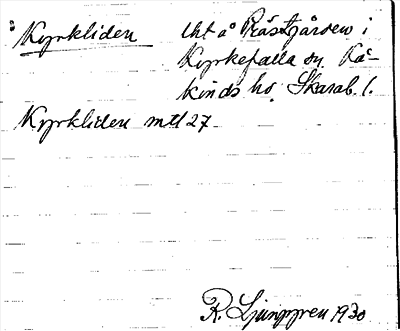 Kyrkliden Uht å Prästgården i
Kyrkefalla sn, Kå-
kinds hd. Skarab. l.
Kyrkliden mtl 27
R. Ljunggren 1930